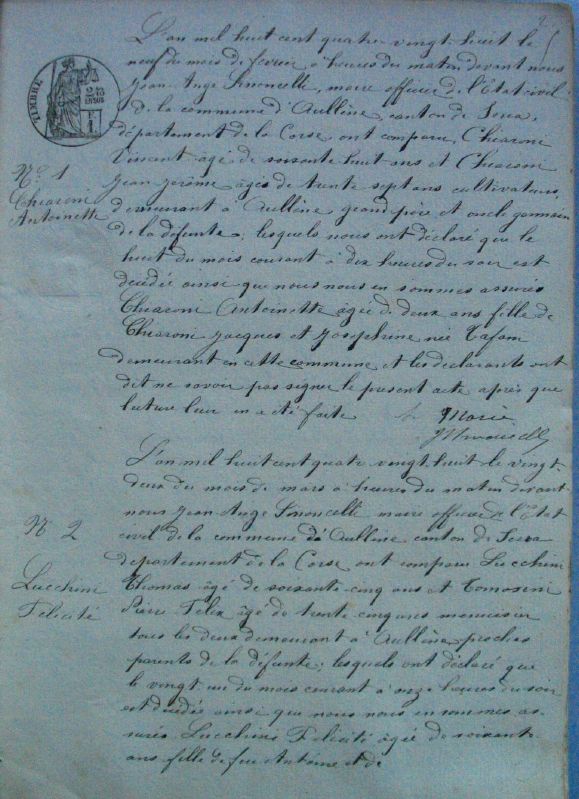 L'an mil huit cent quatre-vingt-huit le
neuf du mois de février à heures du matin devant nous
Jean Ange Simoncelli, maire officier de l'Etat civil
de la commune d'Aullène, canton de Serra,
département de la Corse ont comparu, Chiaroni
Vissent âgé de soixante huit ans et Chiaroni
Jean Jérôme âgés de trente sept ans cultivateurs,
demeurant à Aullène grand père et oncle germain
de la défunte, lesquels nous ont déclaré que le
huit du mois courant à dix heures du soir est
décédée ainsi que nous nous en sommes assurés
Chiaroni Antoinette âgée de deux ans fille de
Chiaroni Jacques et Joséphine née Tafani
demeurant en cette commune et les déclarants ont
dit ne savoir pas signer le présent acte après que
lecture leur en a été faite Le Maire
Simoncelli
TIMBRE
N° 1
Chiaroni
Antoinette
L'an mil huit cent quatre vingt huit le vingt-
deux du mois de mars à heures du matin devant
nous Jean Ange Simoncelli maire officier de l'Etat
civil de la commune d'Aullène canton de Serra
département de la Corse ont comparu Lucchini
Thomas âgé de soixante-cinq ans et Tomasini
Pierre Felix âgé de trente-cinq ans menuisier
tous les deux demeurant à Aullène, proches
parents de la défunte, lesquels ont déclaré que
le vingt un du mois courant à onze heures du soir
est décédée ainsi que nous nous en sommes as-
surés Lucchini Felicité âgée de soixante
ans fille de feu Antoine et de
N° 2
Lucchini
Felicité